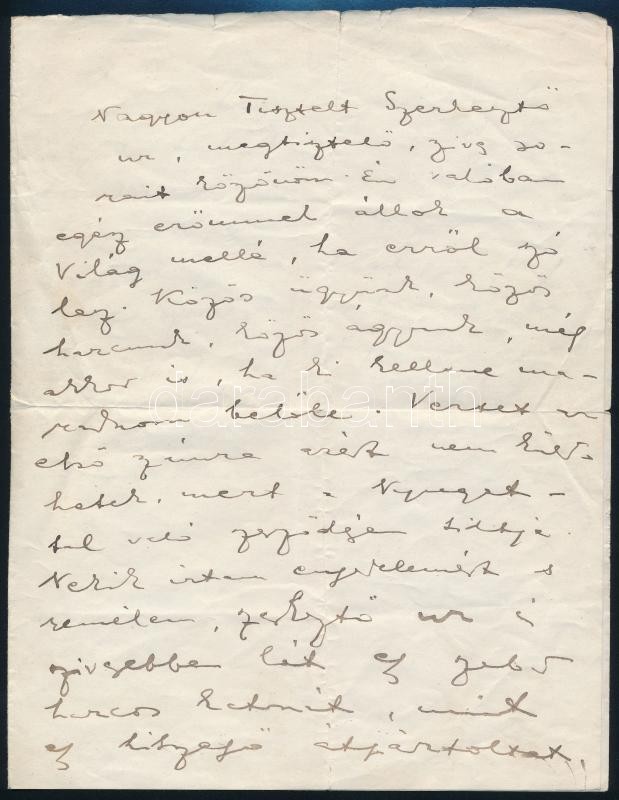 Nagyon Tisztelt Szerkesztő
ur, megtisztelő, szives so-
rait köszönöm. Én valóban
egész erőmmel állok a
Világ mellé, ha erről szó
lesz. Közös ügyünk, közös
harcunk, közös ágyunk, még
akkor is, ha ki kellene ma-
radnom belőle. Verset az
első számra azért nem küld-
hetek, mert a Nyugat-
tal való szerződésem tiltja.
Nekik irtam engedelemért s
remélem, szerkesztő ur is
szivesebben lát egy szabad
harcos katonát, mint
egy átpártoltat.
darabanth